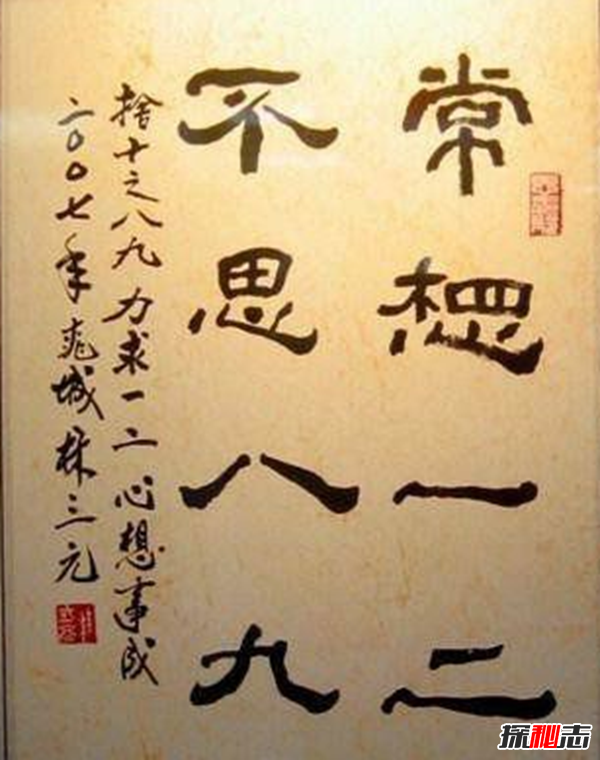 常想一二
不思八九
捨十之八九力求一二心想事成
二〇〇七年城林三元
探秘志